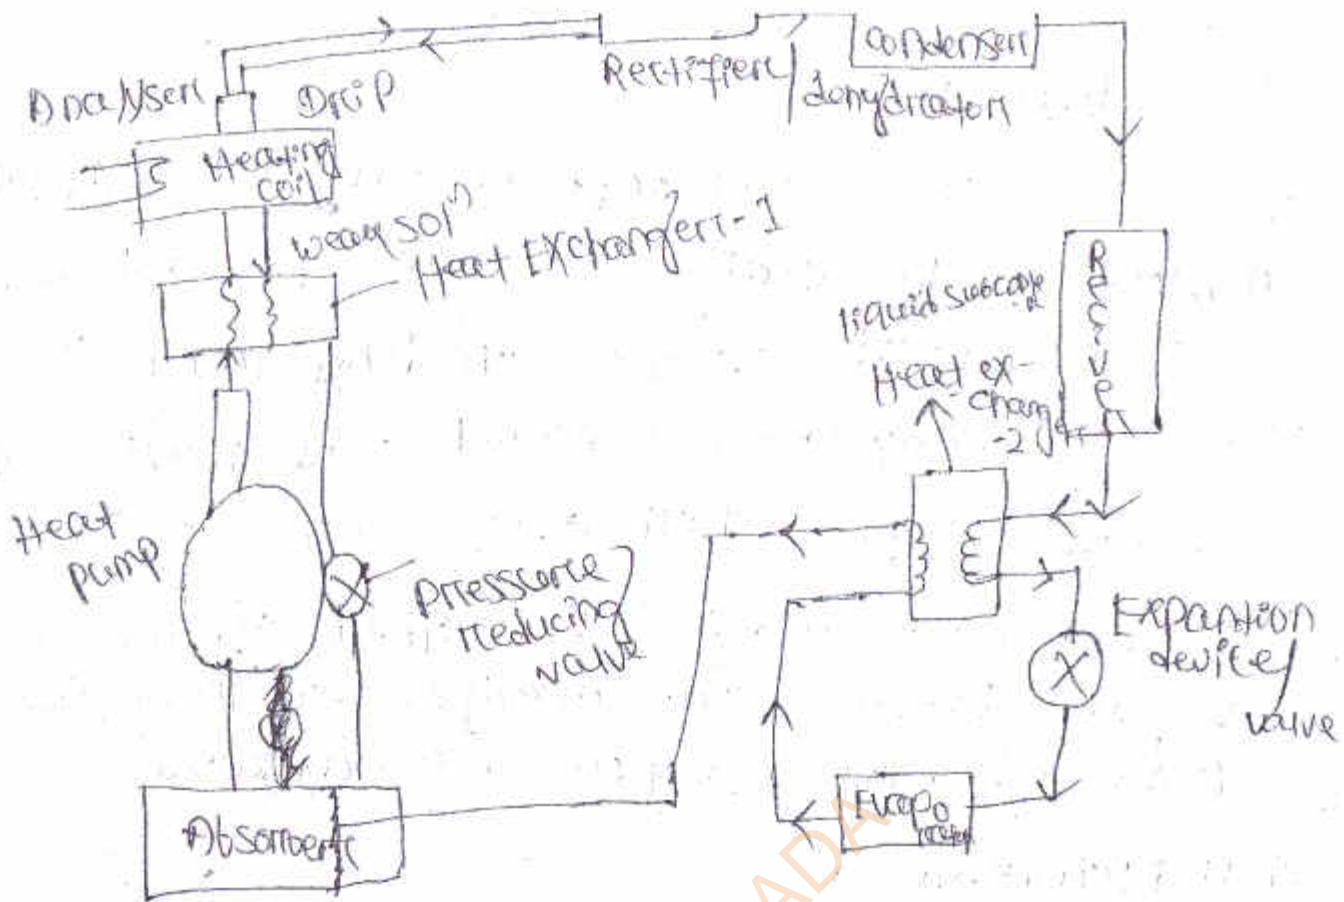 Analyser
Drip
Rectifier/
dehydrator
Condenser
Heating
coil
weak soln
Heat Exchanger-1
liquid subcooler
Heat ex-
changer
-2
Receiver
Heat
pump
Pressure
reducing
valve
Expantion
device/
valve
Evapo
rator
Absorber
ADA